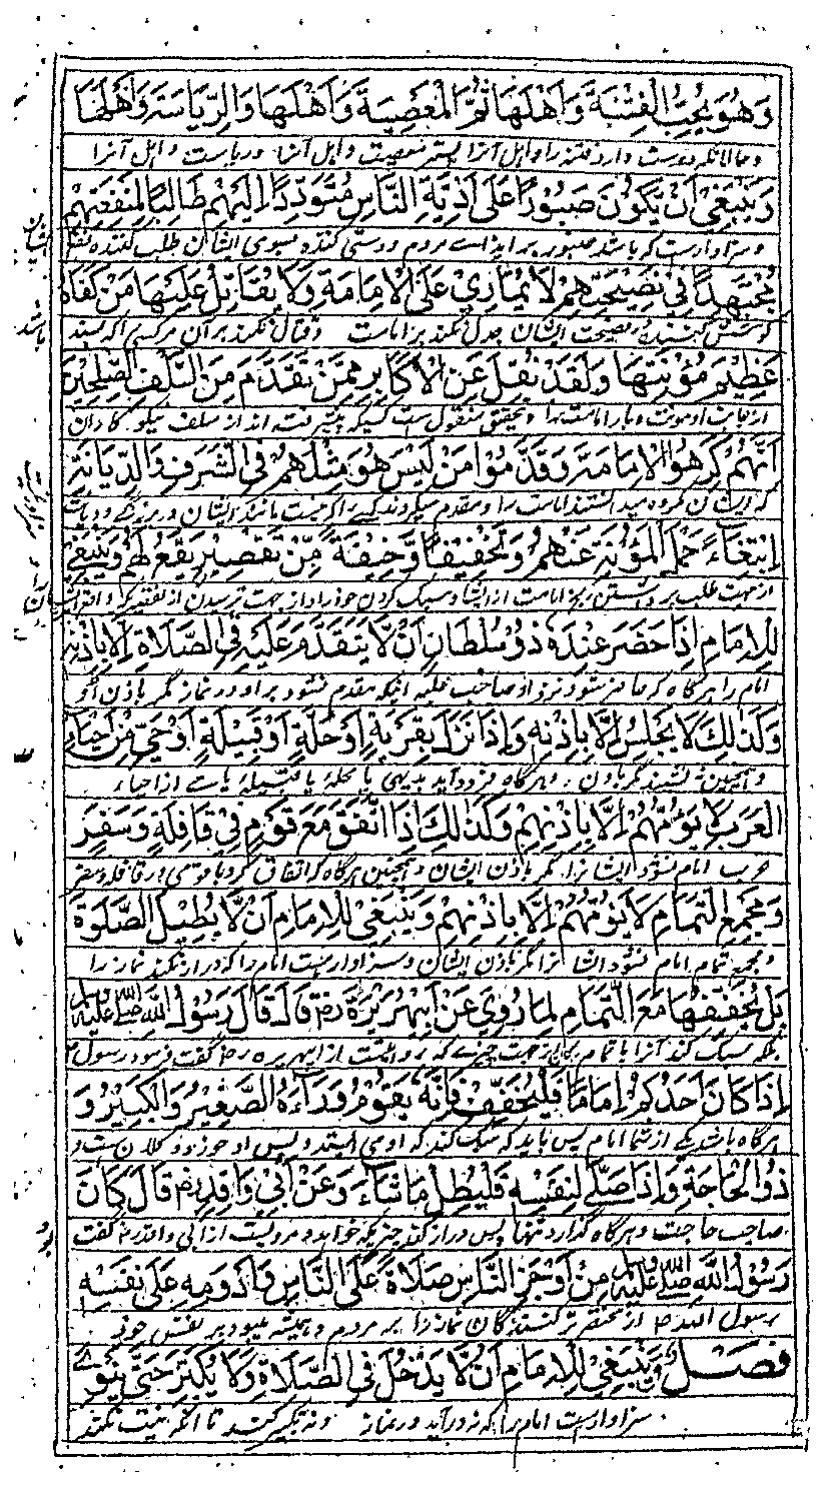 وَهُوَ يُحِبُّ الْفِتْنَةَ وَاَهْلَهَا ثُمَّ الْمَعْصِيَةَ وَاَهْلَهَا وَالرِّيَاسَةَ وَاَهْلَهَا
و حالانکه دوست دارد فتنه را و اهل آنرا پستر معصیت و اهل آنرا و ریاست و اهل آنرا
وَيَنْبَغِيْ اَنْ يَّكُوْنَ صَبُوْرًا عَلٰى اَذِيَّةِ النَّاسِ مُتَوَدِّدًا اِلَيْهِمْ طَالِبًا لِمَنْفَعَتِهِمْ
و سزاوارست که باشد صبور بر اذیت مردم و دوستی کننده بسوی ایشان طلب کننده نفع ایشان
مُجْتَهِدًا فِيْ نَصِيْحَتِهِمْ لَا يُمَارِيْ عَلَى الْاِمَامَةِ وَلَا يُقَاتِلُ عَلَيْهَا مَنْ كَفَاهُ
کوشش کننده در نصیحت ایشان جدل نکند بر امامت و قتال نکند بر آن هر کسی را که بسند باشد
عَظِيْمَ مُؤْنَتِهَا وَلَقَدْ نُقِلَ عَنِ الْاَكَابِرِ مِمَّنْ تَقَدَّمَ مِنَ السَّلَفِ الصّٰلِحِيْنَ
و بار امامت را و بتحقیق منقول ست از کسیکه پیشرفته اند از سلف نیکو کاران
اَنَّهُمْ كَرِهُوا الْاِمَامَةَ وَقَدَّمُوْا مَنْ لَيْسَ هُوَ مِثْلَهُمْ فِي الشَّرَفِ وَالدِّيَانَةِ
که ایشان مکروه میداشتند امامت را و مقدم میکردند کسے را که نیست مانند ایشان در بزرگے و دیانت
اِبْتِغَاءَ حَمْلِ الْمُؤْنَةِ عَنْهُمْ وَتَخْفِيْفًا وَّخِيْفَةً مِّنْ تَقْصِيْرٍ يَقَعُ لَهُمْ وَيَنْبَغِيْ
از جهت طلب برداشتن رنج امامت از ایشان و سبک کردن خود را و از جهت ترسیدن از تقصیر که واقع
لِلْاِمَامِ اِذَا حَضَرَ عِنْدَهٗ ذُوْ سُلْطَانٍ اَنْ لَّا يَتَقَدَّمَ عَلَيْهِ فِي الصَّلَاةِ اِلَّا بِاِذْنِهٖ
امام را هر گاه که حاضر شود نزد او صاحب غلبه اینکه مقدم نشود بر او در نماز مگر باذن او
وَكَذٰلِكَ لَا يَجْلِسُ اِلَّا بِاِذْنِهٖ وَاِذَا نَزَلَ بِقَرْيَةٍ اَوْ حَلَّةٍ اَوْ قَبِيْلَةٍ اَوْ حَيٍّ مِّنْ اَحْيَاءِ
و همچنین نه نشیند مگر باذن و هر گاه فرود آید بدیهی یا محله یا قبیله یا حی از احیاء
الْعَرَبِ لَا يَؤُمُّهُمْ اِلَّا بِاِذْنِهِمْ وَكَذٰلِكَ اِذَا اتَّفَقَ مَعَ قَوْمٍ فِيْ قَافِلَةٍ وَّسَفَرٍ
عرب امام نشود ایشانرا مگر باذن ایشان و همچنین هر گاه که اتفاق کرد با قومی در قافله و سفر
وَمَجْمَعِ التَّمَامِ لَا يَؤُمُّهُمْ اِلَّا بِاِذْنِهِمْ وَيَنْبَغِيْ لِلْاِمَامِ اَنْ لَّا يُطِيْلَ الصَّلٰوةَ
و مجمع تمام امام نشود ایشانرا مگر باذن ایشان و سزاوارست امام را که دراز نکند نماز را
بَلْ يُخَفِّفُهَا مَعَ التَّمَامِ لِمَا رُوِيَ عَنْ اَبِيْ هُرَيْرَةَ رضـ قَالَ قَالَ رَسُوْلُ اللّٰهِ صلى الله عليه وسلم
بلکه سبک کند آنرا با تمام از جهت چیزیکه روایتست از ابی هریره رضـ گفت فرمود رسول
اِذَا كَانَ اَحَدُكُمْ اِمَامًا فَلْيُخَفِّفْ فَاِنَّهٗ يَقُوْمُ وَرَاءَهُ الصَّغِيْرُ وَالْكَبِيْرُ وَ
هر گاه باشد یکے از شما امام پس باید که سبک کند که او می ایستد پس او خورد و کلان ست و
ذُو الْحَاجَةِ وَاِذَا صَلّٰى لِنَفْسِهٖ فَلْيُطِلْ مَا شَاءَ وَعَنْ اَبِيْ وَاقِدٍ رضـ قَالَ كَانَ
صاحب حاجت و هر گاه گذارد تنها پس دراز کند چیزیکه خواهد و مرویست از ابی واقد رضـ گفت بود
رَسُوْلُ اللّٰهِ صلى الله عليه وسلم مِنْ اَوْجَزِ النَّاسِ صَلَاةً عَلَى النَّاسِ وَاَدْوَمِهٖ عَلٰى نَفْسِهٖ
رسول الله صـ از مختصر کنندگان نماز را بر مردم و همیشه میبود بر نفس خود
فَصْلٌ وَيَنْبَغِيْ لِلْاِمَامِ اَنْ لَّا يَدْخُلَ فِي الصَّلَاةِ وَلَا يُكَبِّرَ حَتّٰى يَنْوِيَ
سزاوارست امام را که نه در آید در نماز و نه تکبیر کند تا آنکه نیت نکند